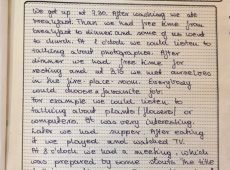 We got up at 7.30. After washing we ate
breakfast. Than we had free time from
breakfast to dinner and some of us went
to church. At 1 o'clock we could listen to
talking about photographer. After
dinner we had free time for
resting and at 2.15 we met ourselves
in the fire place room. Everybody
could choose a favourite job.
For example we could listen to
talking about plants (flowers) or
computers. It was very interesting.
Later we had supper. After eating
it we played and watched TV.
At 8 o'clock we had a meeting which
was prepared by some scouts. The title